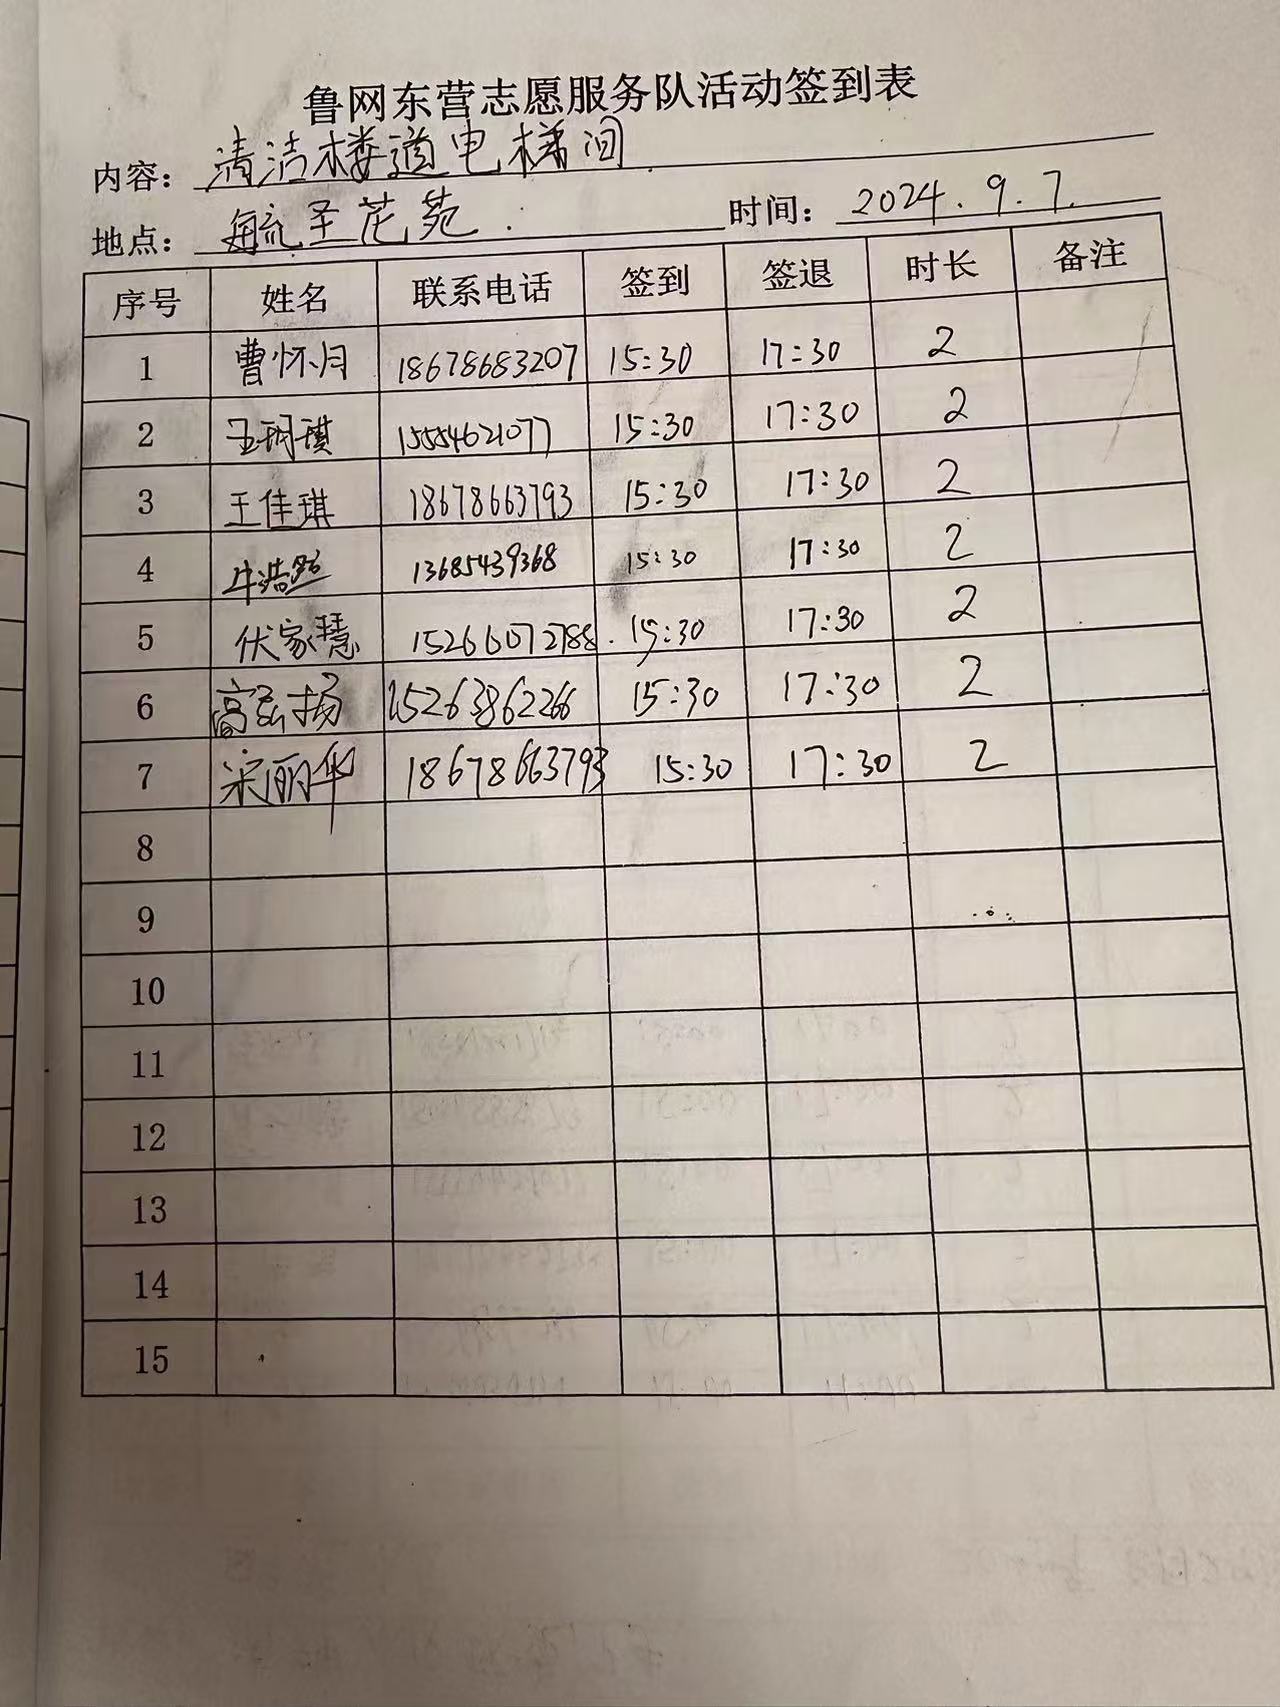 鲁网东营志愿服务队活动签到表
内容：清洁楼道电梯间
地点：毓圣花苑. 时间：2024.9.7.
序号 姓名 联系电话 签到 签退 时长 备注
1 曹怀月 18678683207 15:30 17:30 2
2 王玥琪 15554621077 15:30 17:30 2
3 王佳琪 18678663793 15:30 17:30 2
4 牛浩然 13685439368 15:30 17:30 2
5 伏家慧 15266072788. 15:30 17:30 2
6 高弘扬 15263862266 15:30 17:30 2
7 宋丽华 18678663793 15:30 17:30 2
8
9
10
11
12
13
14
15